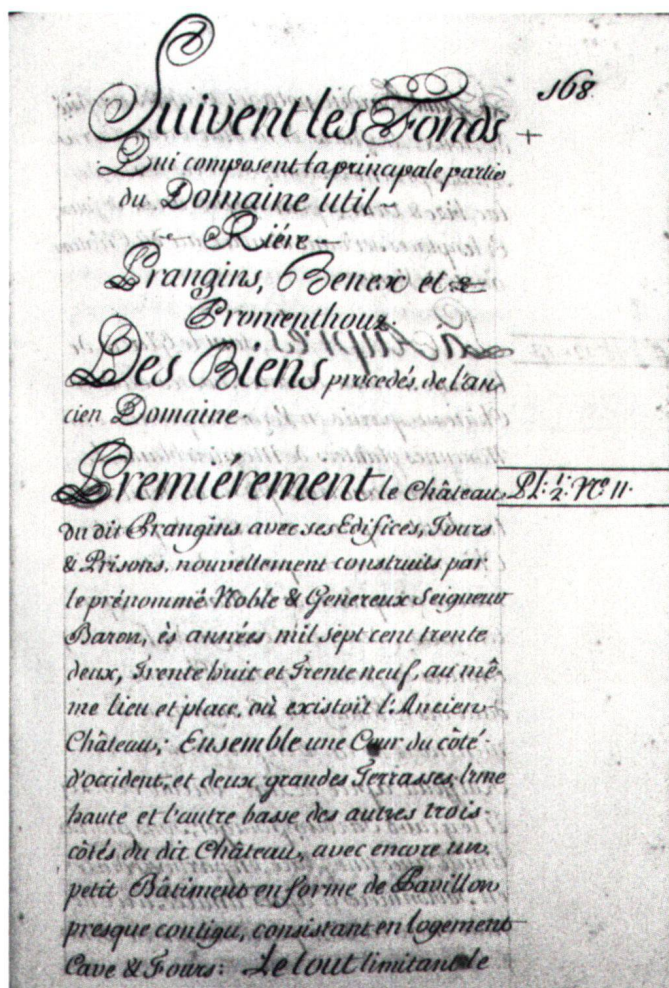 168.
Suivent les Fonds +
Qui composent la principale partie
du Domaine util
Riére
Prangins, Benex et
Promenthoux.
Des Biens procedés de l'an
cien Domaine
Premiérement le Château Pl: 1: 2: No. 11.
du dit Prangins avec ses Edifices, Tours
& Prisons, nouvellement construits par
le prénommé Noble & Genereux Seigneur
Baron, ès années mil sept cent trente
deux, Trente huit et Trente neuf, au mê-
me lieu et place, où existoit l'Ancien
Château; Ensemble une Cour du côté
d'occident, et deux grandes Terrasses l'une
haute et l'autre basse des autres trois
côtés du dit Château, avec encore un
petit Bâtiment en forme de Pavillon
presque contigu, consistant en logement
Cave & Fours: Le tout limitant de